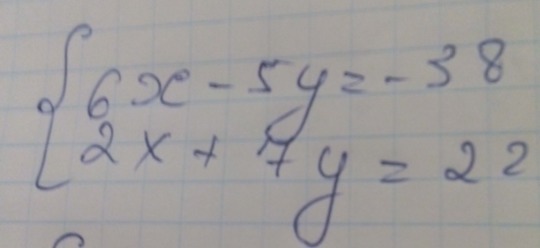 6x - 5y = -38
2x + 7y = 22